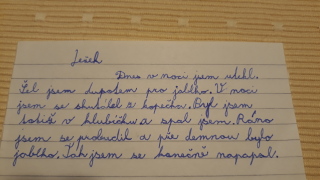 Ježek
Dnes v noci jsem utekl.
Šel jsem dupotem pro jablko. V noci
jsem se skutálel z kopečka. Byl jsem
totiž v klubíčku a spal jsem. Ráno
jsem se probudil a pře demnou bylo
jablko. Tak jsem se konečně napapal.